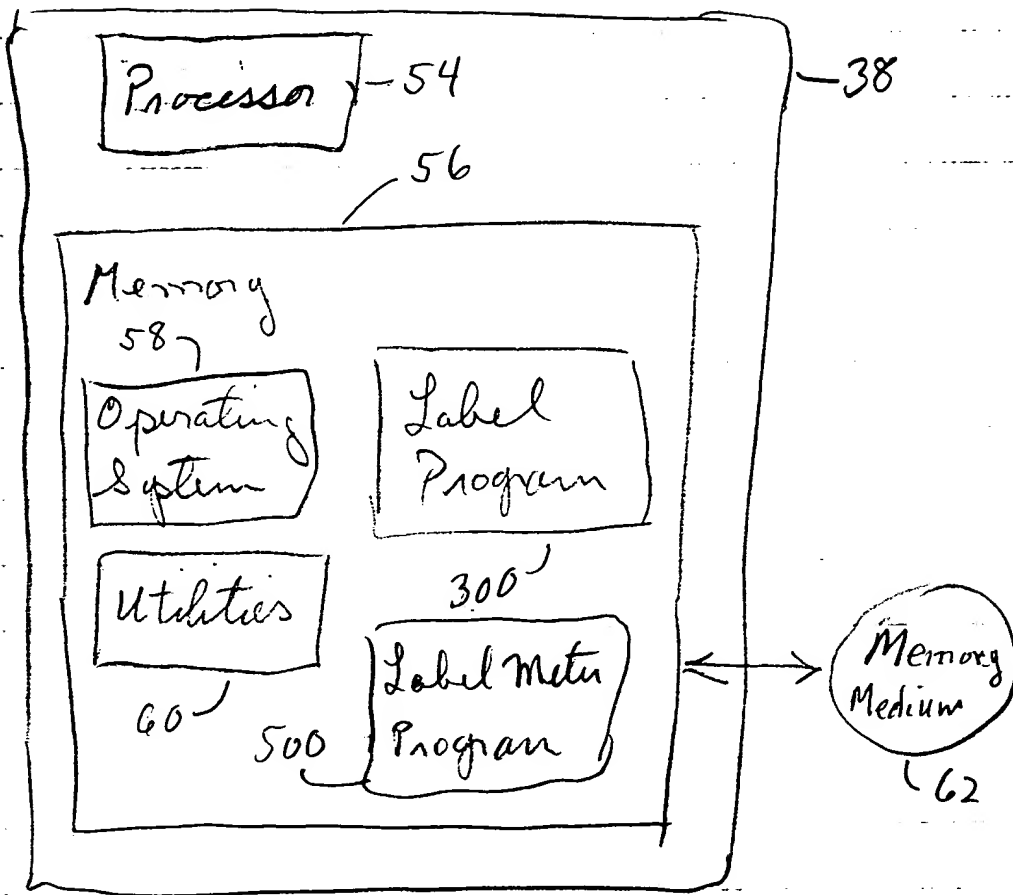 Processor
54
38
56
Memory
58
Operating
System
Label
Program
300
Utilities
60
Label Meter
Program
500
Memory
Medium
62